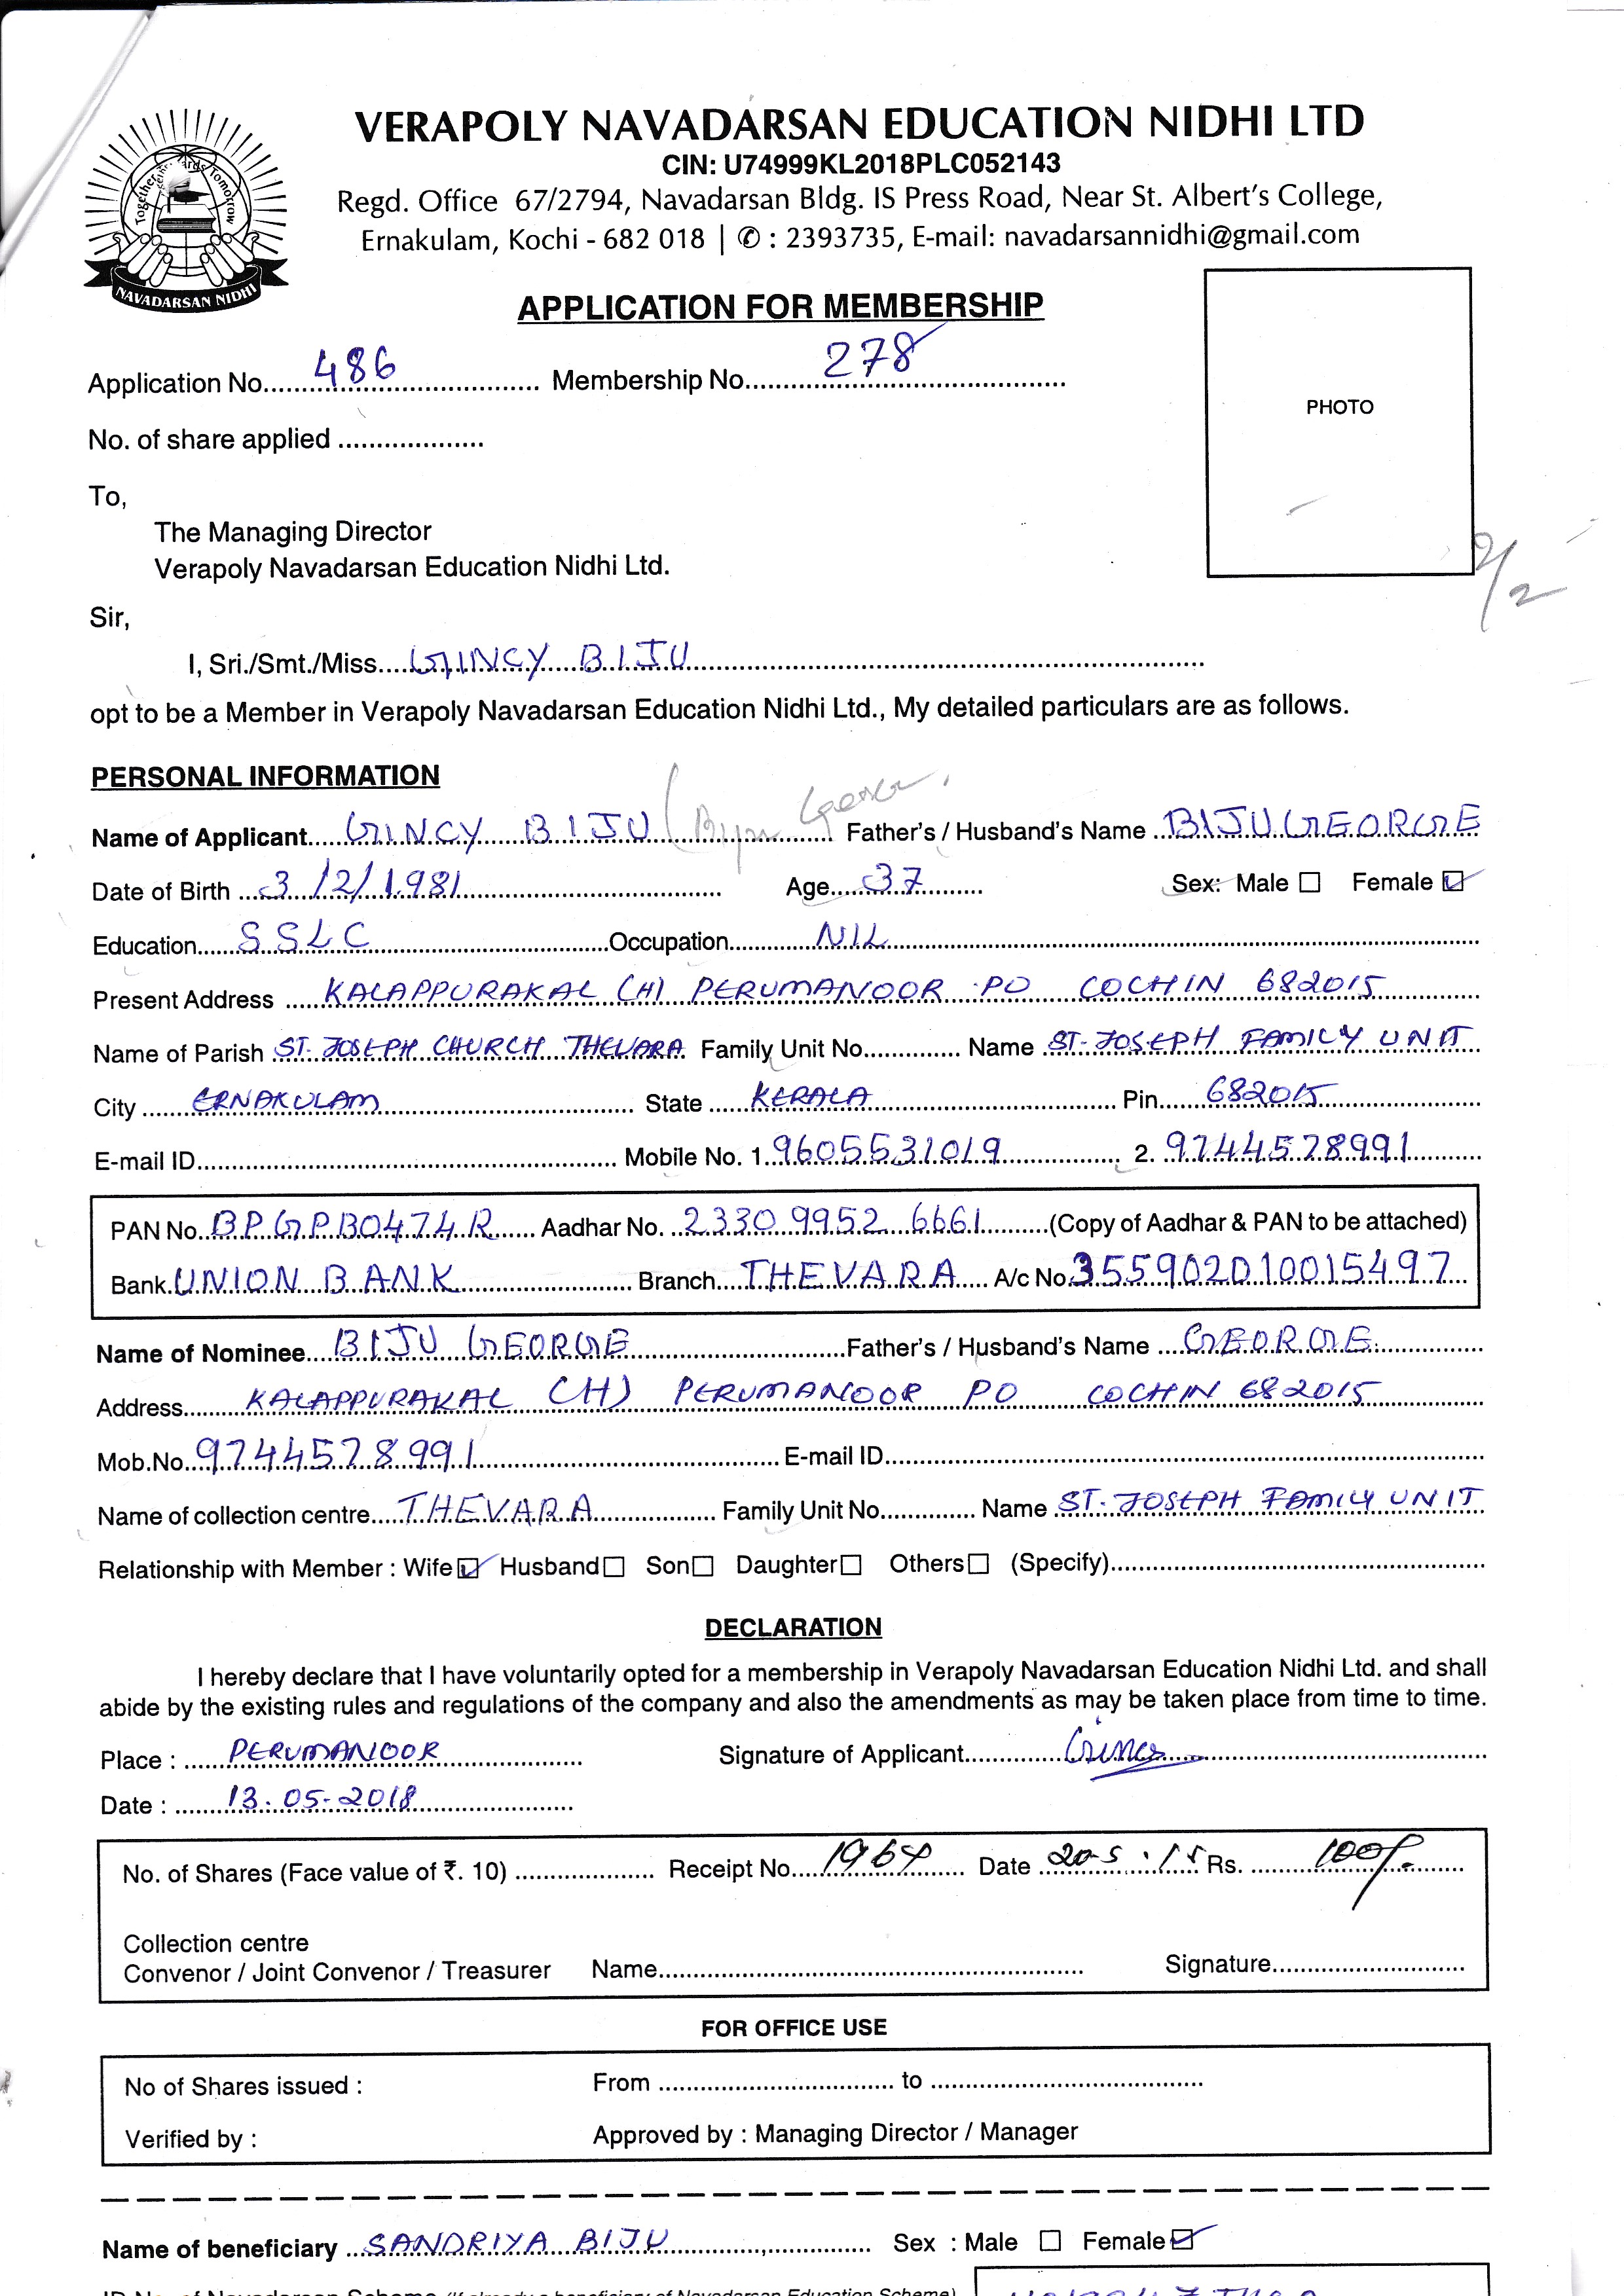 VERAPOLY NAVADARSAN EDUCATION NIDHI LTD
CIN: U74999KL2018PLC052143
Regd. Office 67/2794, Navadarsan Bldg. IS Press Road, Near St. Albert's College,
Ernakulam, Kochi - 682 018 | ✆ : 2393735, E-mail: navadarsannidhi@gmail.com
Together Towards Tomorrow
NAVADARSAN NIDHI
APPLICATION FOR MEMBERSHIP
Application No. 486 Membership No. 278
No. of share applied
PHOTO
To,
The Managing Director
Verapoly Navadarsan Education Nidhi Ltd.
Sir,
I, Sri./Smt./Miss. GINCY BIJU
opt to be a Member in Verapoly Navadarsan Education Nidhi Ltd., My detailed particulars are as follows.
PERSONAL INFORMATION
Name of Applicant GINCY BIJU (Biju George. Father's / Husband's Name BIJU GEORGE
Date of Birth 3/2/1981 Age 37 Sex: Male ☐ Female ☑
Education SSLC Occupation NIL
Present Address KALAPPURAKAL (H) PERUMANOOR PO COCHIN 682015
Name of Parish ST. JOSEPH CHURCH THEVARA Family Unit No. Name ST. JOSEPH FAMILY UNIT
City ERNAKULAM State KERALA Pin 682015
E-mail ID Mobile No. 1. 9605531019 2. 9744578991
PAN No. BPGPB0474R Aadhar No. 2330 9952 6661 (Copy of Aadhar & PAN to be attached)
Bank UNION BANK Branch THEVARA A/c No. 355902010015497
Name of Nominee BIJU GEORGE Father's / Husband's Name GEORGE
Address KALAPPURAKAL (H) PERUMANOOR PO COCHIN 682015
Mob.No. 9744578991 E-mail ID
Name of collection centre THEVARA Family Unit No. Name ST. JOSEPH FAMILY UNIT
Relationship with Member : Wife ☑ Husband ☐ Son ☐ Daughter ☐ Others ☐ (Specify)
DECLARATION
I hereby declare that I have voluntarily opted for a membership in Verapoly Navadarsan Education Nidhi Ltd. and shall
abide by the existing rules and regulations of the company and also the amendments as may be taken place from time to time.
Place : PERUMANOOR Signature of Applicant Gincy
Date : 13.05-2018
No. of Shares (Face value of ₹. 10) Receipt No. 1964 Date Rs. 100/.
Collection centre
Convenor / Joint Convenor / Treasurer Name Signature
FOR OFFICE USE
No of Shares issued : From to
Verified by : Approved by : Managing Director / Manager
Name of beneficiary SANDRIYA BIJU Sex : Male ☐ Female ☑